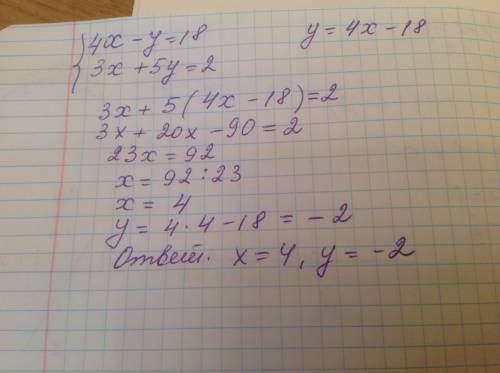 4x - y = 18 y = 4x - 18
3x + 5y = 2
3x + 5(4x - 18) = 2
3x + 20x - 90 = 2
23x = 92
x = 92 : 23
x = 4
y = 4 · 4 - 18 = -2
Ответ. x = 4, y = -2